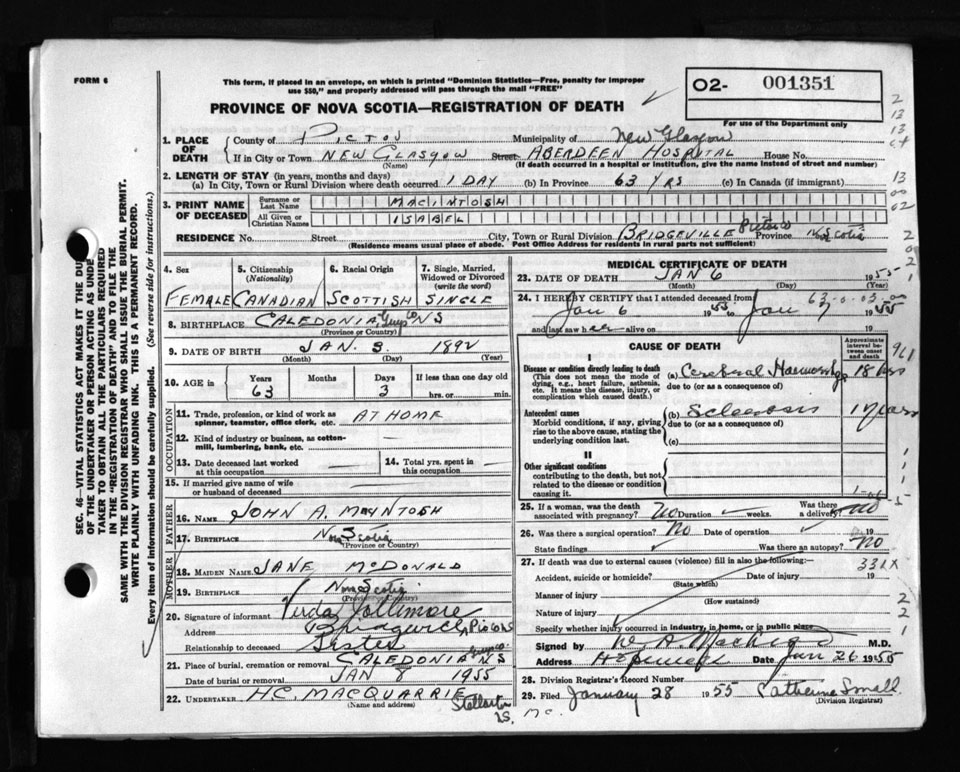 FORM 6
This form, if placed in an envelope, on which is printed "Dominion Statistics—Free, penalty for improper
use $50," and properly addressed will pass through the mail "FREE"
O2- 001351
For use of the Department only
PROVINCE OF NOVA SCOTIA—REGISTRATION OF DEATH
1. PLACE OF DEATH
County of PICTOU Municipality of New Glasgow
If in City or Town NEW GLASGOW Street ABERDEEN HOSPITAL House No.
(Name) (If death occurred in a hospital or institution, give the name instead of street and number)
2. LENGTH OF STAY (in years, months and days)
(a) In City, Town or Rural Division where death occurred 1 DAY (b) In Province 63 YRS (c) In Canada (if immigrant)
3. PRINT NAME OF DECEASED
Surname or Last Name MACINTOSH
All Given or Christian Names ISABEL
RESIDENCE No. Street City, Town or Rural Division BRIDGEVILLE Pictou Co Province N. Scotia
(Residence means usual place of abode. Post Office Address for residents in rural parts not sufficient)
SEC. 46—VITAL STATISTICS ACT MAKES IT THE DU
OF THE UNDERTAKER OR PERSON ACTING AS UNDE
TAKER TO OBTAIN ALL THE PARTICULARS REQUIRED
IN THE "REGISTRATION OF DEATH" AND TO FILE THE
SAME WITH THE DIVISION REGISTRAR WHO SHALL ISSUE THE BURIAL PERMIT.
WRITE PLAINLY WITH UNFADING INK. THIS IS A PERMANENT RECORD.
Every item of Information should be carefully supplied. (See reverse side for instructions.)
4. Sex FEMALE
5. Citizenship (Nationality) CANADIAN
6. Racial Origin SCOTTISH
7. Single, Married, Widowed or Divorced (write the word) SINGLE
8. BIRTHPLACE CALEDONIA Guys Co NS
(Province or Country)
9. DATE OF BIRTH JAN. 3. 1892
(Month) (Day) (Year)
10. AGE in Years 63 Months Days 3 If less than one day old hrs. or min.
OCCUPATION
11. Trade, profession, or kind of work as spinner, teamster, office clerk, etc. AT HOME
12. Kind of industry or business, as cotton-mill, lumbering, bank, etc. —
13. Date deceased last worked at this occupation —
14. Total yrs. spent in this occupation —
15. If married give name of wife or husband of deceased —
FATHER
16. NAME JOHN A. MACINTOSH
17. BIRTHPLACE Nova Scotia
(Province or Country)
MOTHER
18. MAIDEN NAME JANE McDONALD
19. BIRTHPLACE Nova Scotia
(Province or Country)
20. Signature of informant Verda
Address Pic Co NS
Relationship to deceased Sister
21. Place of burial, cremation or removal CALEDONIA Guys Co. NS
Date of burial or removal JAN 8 1955
22. UNDERTAKER H.C. MACQUARRIE Stellarton
(Name and address) NS.
MEDICAL CERTIFICATE OF DEATH
23. DATE OF DEATH JAN 6 1955
(Month) (Day) (Year)
24. I HEREBY CERTIFY that I attended deceased from
Jan 6 1955 to Jan 7 1955
and last saw her alive on 19
CAUSE OF DEATH
Approximate interval between onset and death
Disease or condition directly leading to death
(This does not mean the mode of dying, e.g., heart failure, asthenia, etc. It means the disease, injury, or complication which caused death.)
(a) Cerebral Haemorrhage 18 hrs
due to (or as a consequence of)
Antecedent causes
Morbid conditions, if any, giving rise to the above cause, stating the underlying condition last.
(b)
due to (or as a consequence of)
(c)
II
Other significant conditions
contributing to the death, but not related to the disease or condition causing it.
25. If a woman, was the death associated with pregnancy? No Duration weeks. Was there a delivery? no
26. Was there a surgical operation? No Date of operation 19
State findings Was there an autopsy? No
27. If death was due to external causes (violence) fill in also the following:—
Accident, suicide or homicide? Date of injury 19
(State which)
Manner of injury
(How sustained)
Nature of injury
Specify whether injury occurred in industry, in home, or in public place
Signed by M.D.
Address Date Jan 26 1955
28. Division Registrar's Record Number
29. Filed January 28 1955 Catherine Small
(Division Registrar)